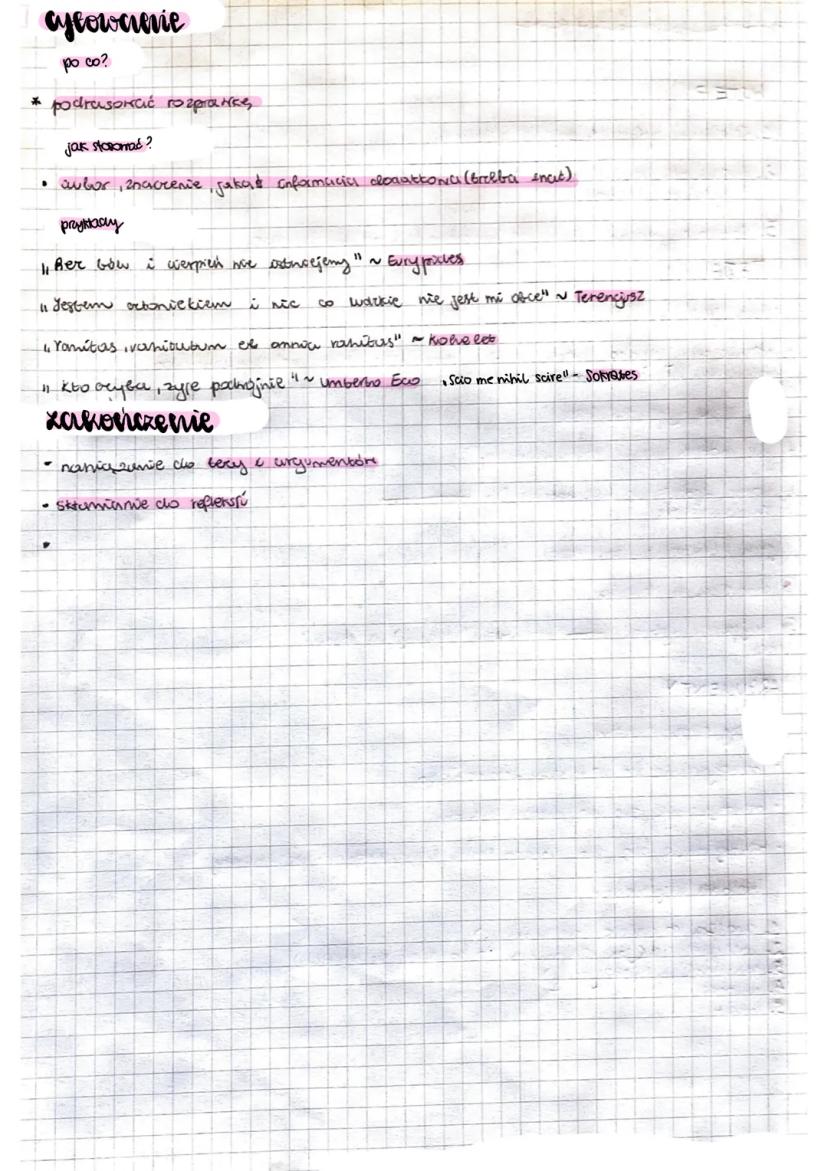 cytowanie
po co?
* podrasować rozprawkę
jak stosować?
• autor, znaczenie, jakaś informacja dodatkowa (trzeba znać)
przykłady
„Bez bólu i cierpień nie istniejemy" ~ Eurypides
„Jestem człowiekiem i nic co ludzkie nie jest mi obce" ~ Terencjusz
„Vanitas, vanitatum et omnia vanitas" ~ Kohelet
„Kto czyta, żyje podwójnie" ~ Umberto Eco „Scio me nihil scire" - Sokrates
zakończenie
- nawiązanie do tezy i argumentów
• skłanianie do refleksji
•